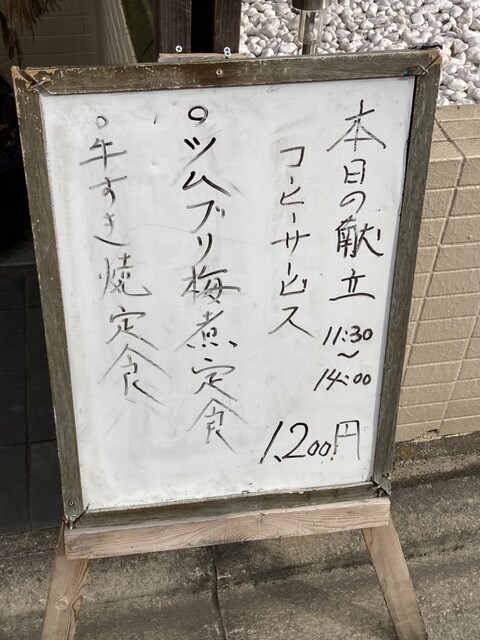 本日の献立
11:30
〜
14:00
コーヒーサービス
1,200円
○ツムブリ梅煮定食
○牛すき焼定食